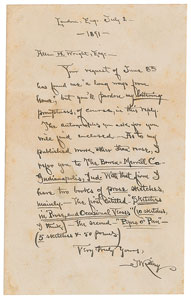 London, Eng., July 2 -
1891
Allen A. Wright, Esq.-
Your request of June 8th
has found me a long ways from
home; but you'll pardon my
promptness, of course, in this reply.
The autographs you ask for you
will find enclosed. As to my
published works, other than these, I
refer you to The Bowen-Merrill Co.
Indianapolis, Ind. With that firm I
have two books of prose sketches,
mainly - the first entitled "Sketches
in Prose, and Occasional Verses" (10 sketches,
the second - "Pipes o' Pan -
(5 sketches & 50 poems)
Very Truly Yours,
J.W. Riley